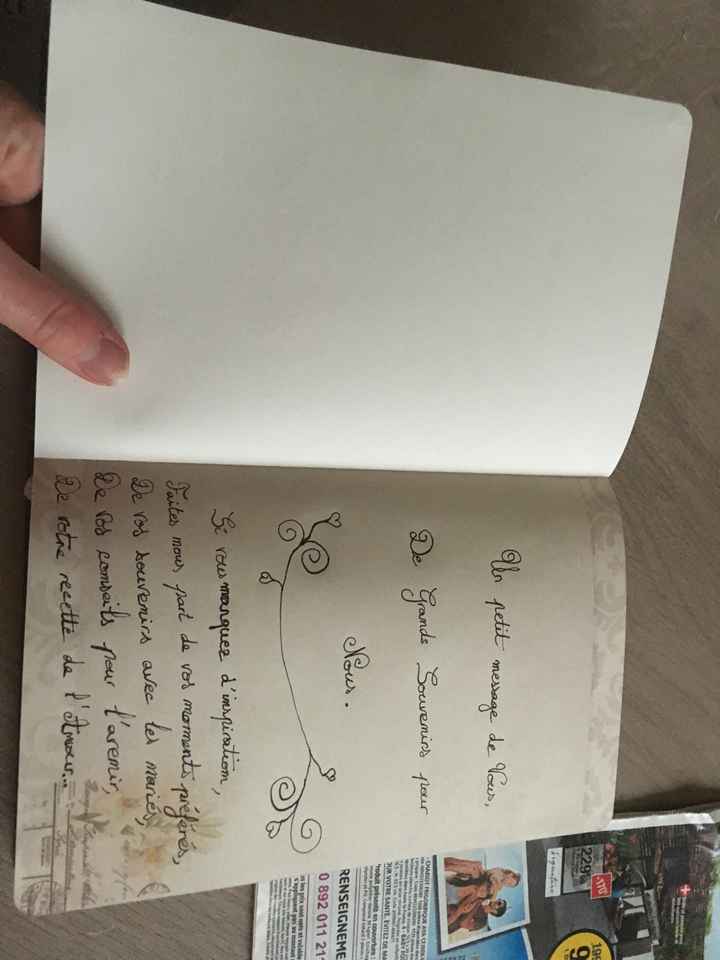 Un petit message de Vous,
De Grands Souvenirs pour
Nous.
Si vous manquez d'inspiration,
Faites nous part de vos moments préférés,
De vos souvenirs avec les mariés,
De vos conseils pour l'avenir,
De votre recette de l'Amour...
RENSEIGNEME
0 892 011 21
229
199